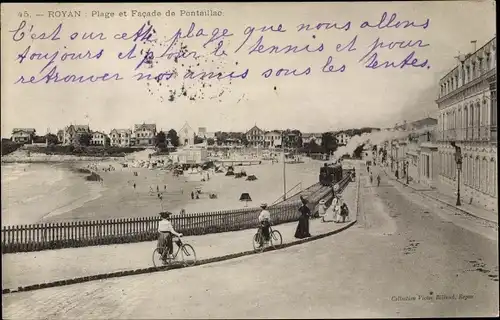 45. - ROYAN - Plage et Façade de Pontaillac.
C'est sur cette plage que nous allons
toujours et pour le tennis et pour
retrouver nos amis sous les tentes.
Collection Victor Billaud, Royan